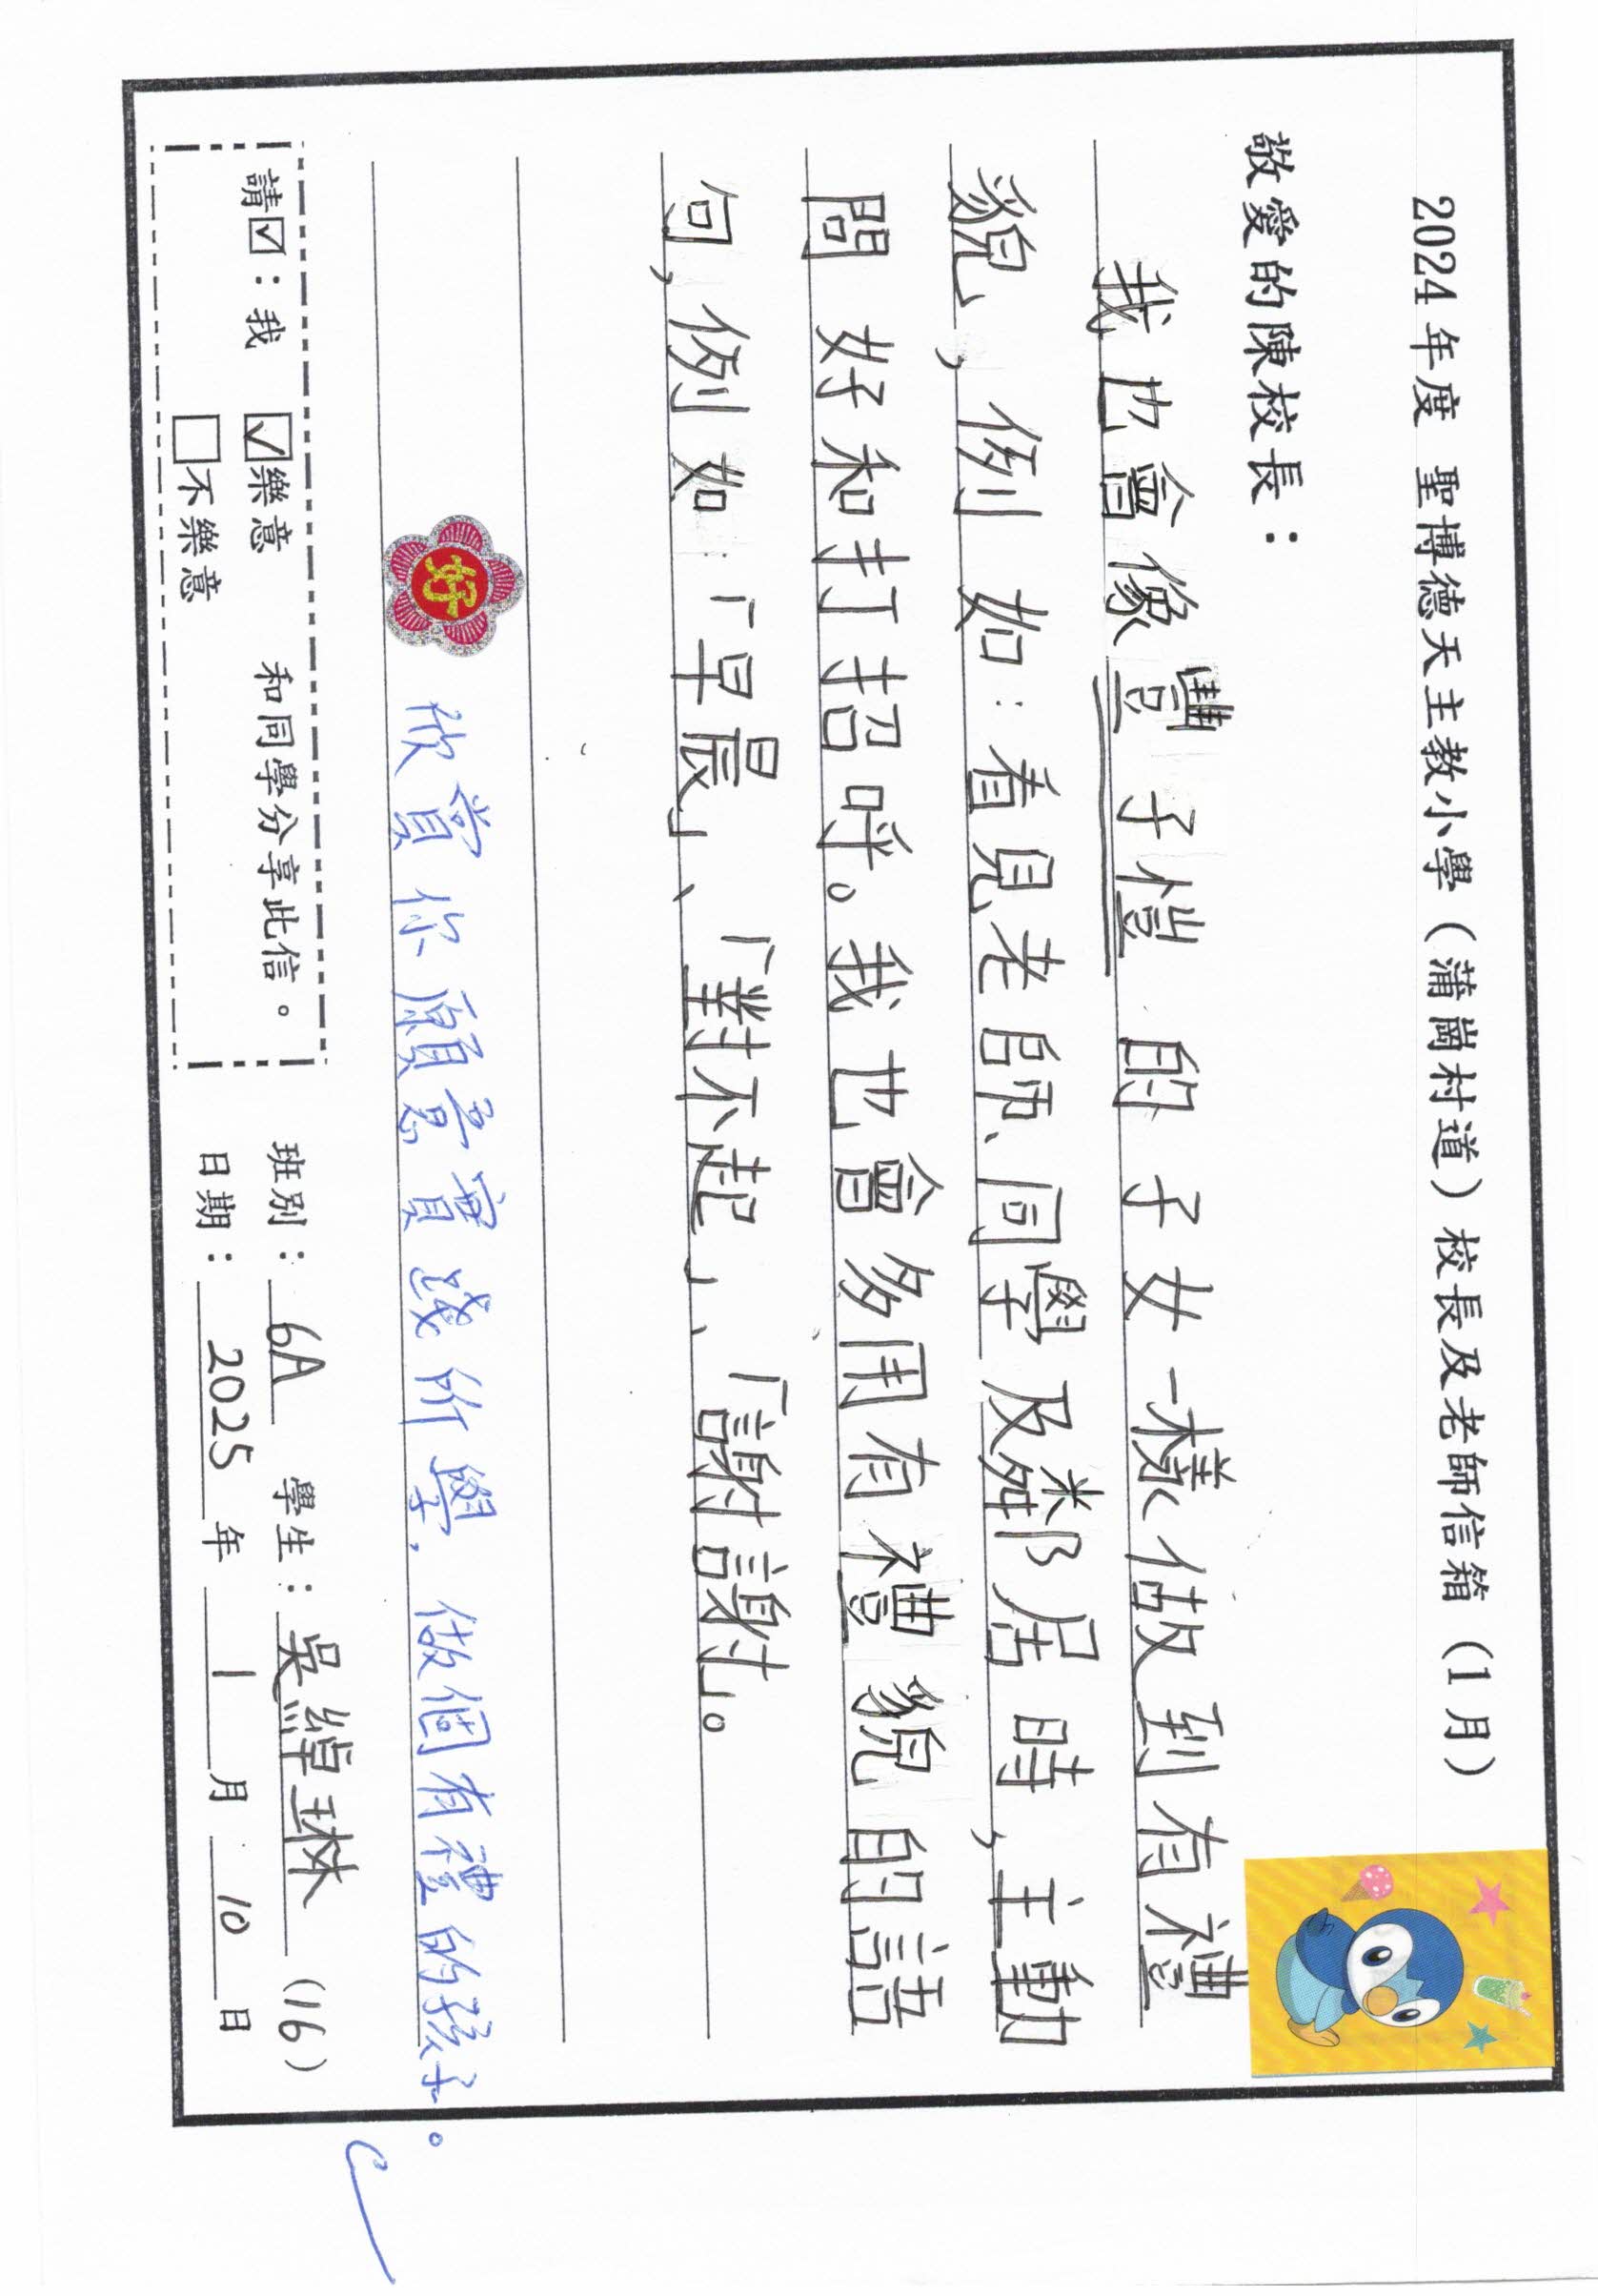 2024 年度 聖博德天主教小學（蒲崗村道）校長及老師信箱（1月）
敬愛的陳校長：
我也會像豐子愷的子女一樣做到有禮
貌，例如：看見老師、同學及鄰居時，主動
問好和打招呼。我也會多用有禮貌的語
句，例如：「早晨」、「對不起」、「謝謝」。
好
欣賞你願意實踐所學，做個有禮的孩子。
請☑：我 ☑樂意 和同學分享此信。
☐不樂意
班別：6A 學生：吳綽琳（16）
日期：2025年1月10日